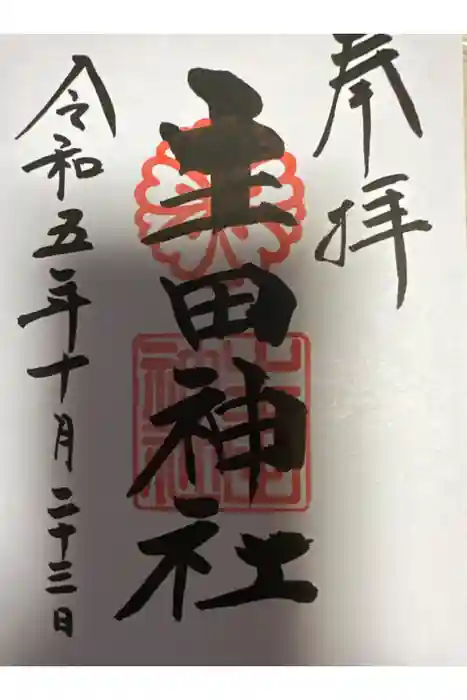 奉拝
生田神社
令和五年十月二十三日
生田神社